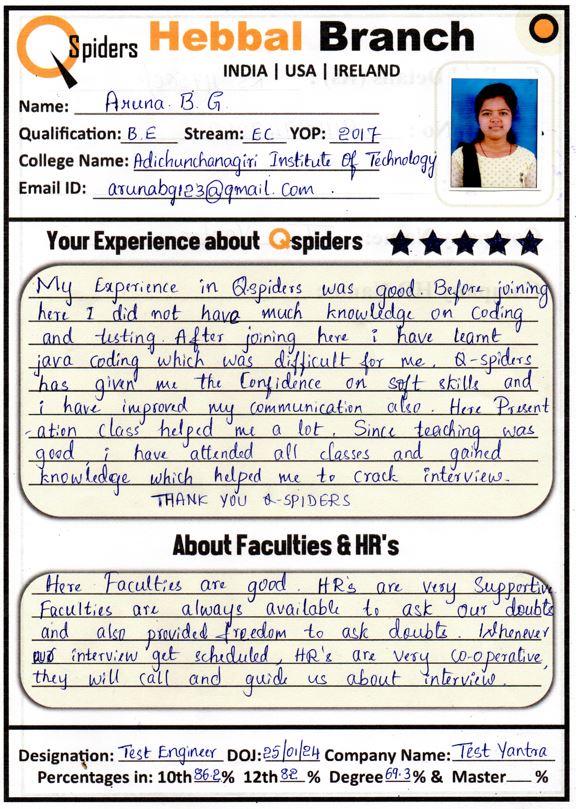 QSpiders Hebbal Branch
INDIA | USA | IRELAND
Name: Aruna. B. G.
Qualification: B.E Stream: EC YOP: 2017
College Name: Adichunchanagiri Institute Of Technology
Email ID: arunabg123@gmail.com .
Your Experience about Qspiders
My Experience in Q-spiders was good. Before joining
here I did not have much knowledge on Coding
and testing. After joining here i have learnt
java coding which was difficult for me. Q-spiders
has given me the Confidence on soft skills and
i have improved my communication also. Here Present
-ation class helped me a lot. Since teaching was
good, i have attended all classes and gained
knowledge which helped me to crack interview.
THANK YOU Q-SPIDERS
About Faculties & HR's
Here Faculties are good. HR's are very Supportive
Faculties are always available to ask our doubts
and also provided freedom to ask doubts. Whenever
our interview get scheduled, HR's are very co-operative,
they will call and guide us about interview.
Designation: Test Engineer DOJ: 25/01/24 Company Name: Test Yantra
Percentages in: 10th 86.2% 12th 82 % Degree 69.3% & Master %